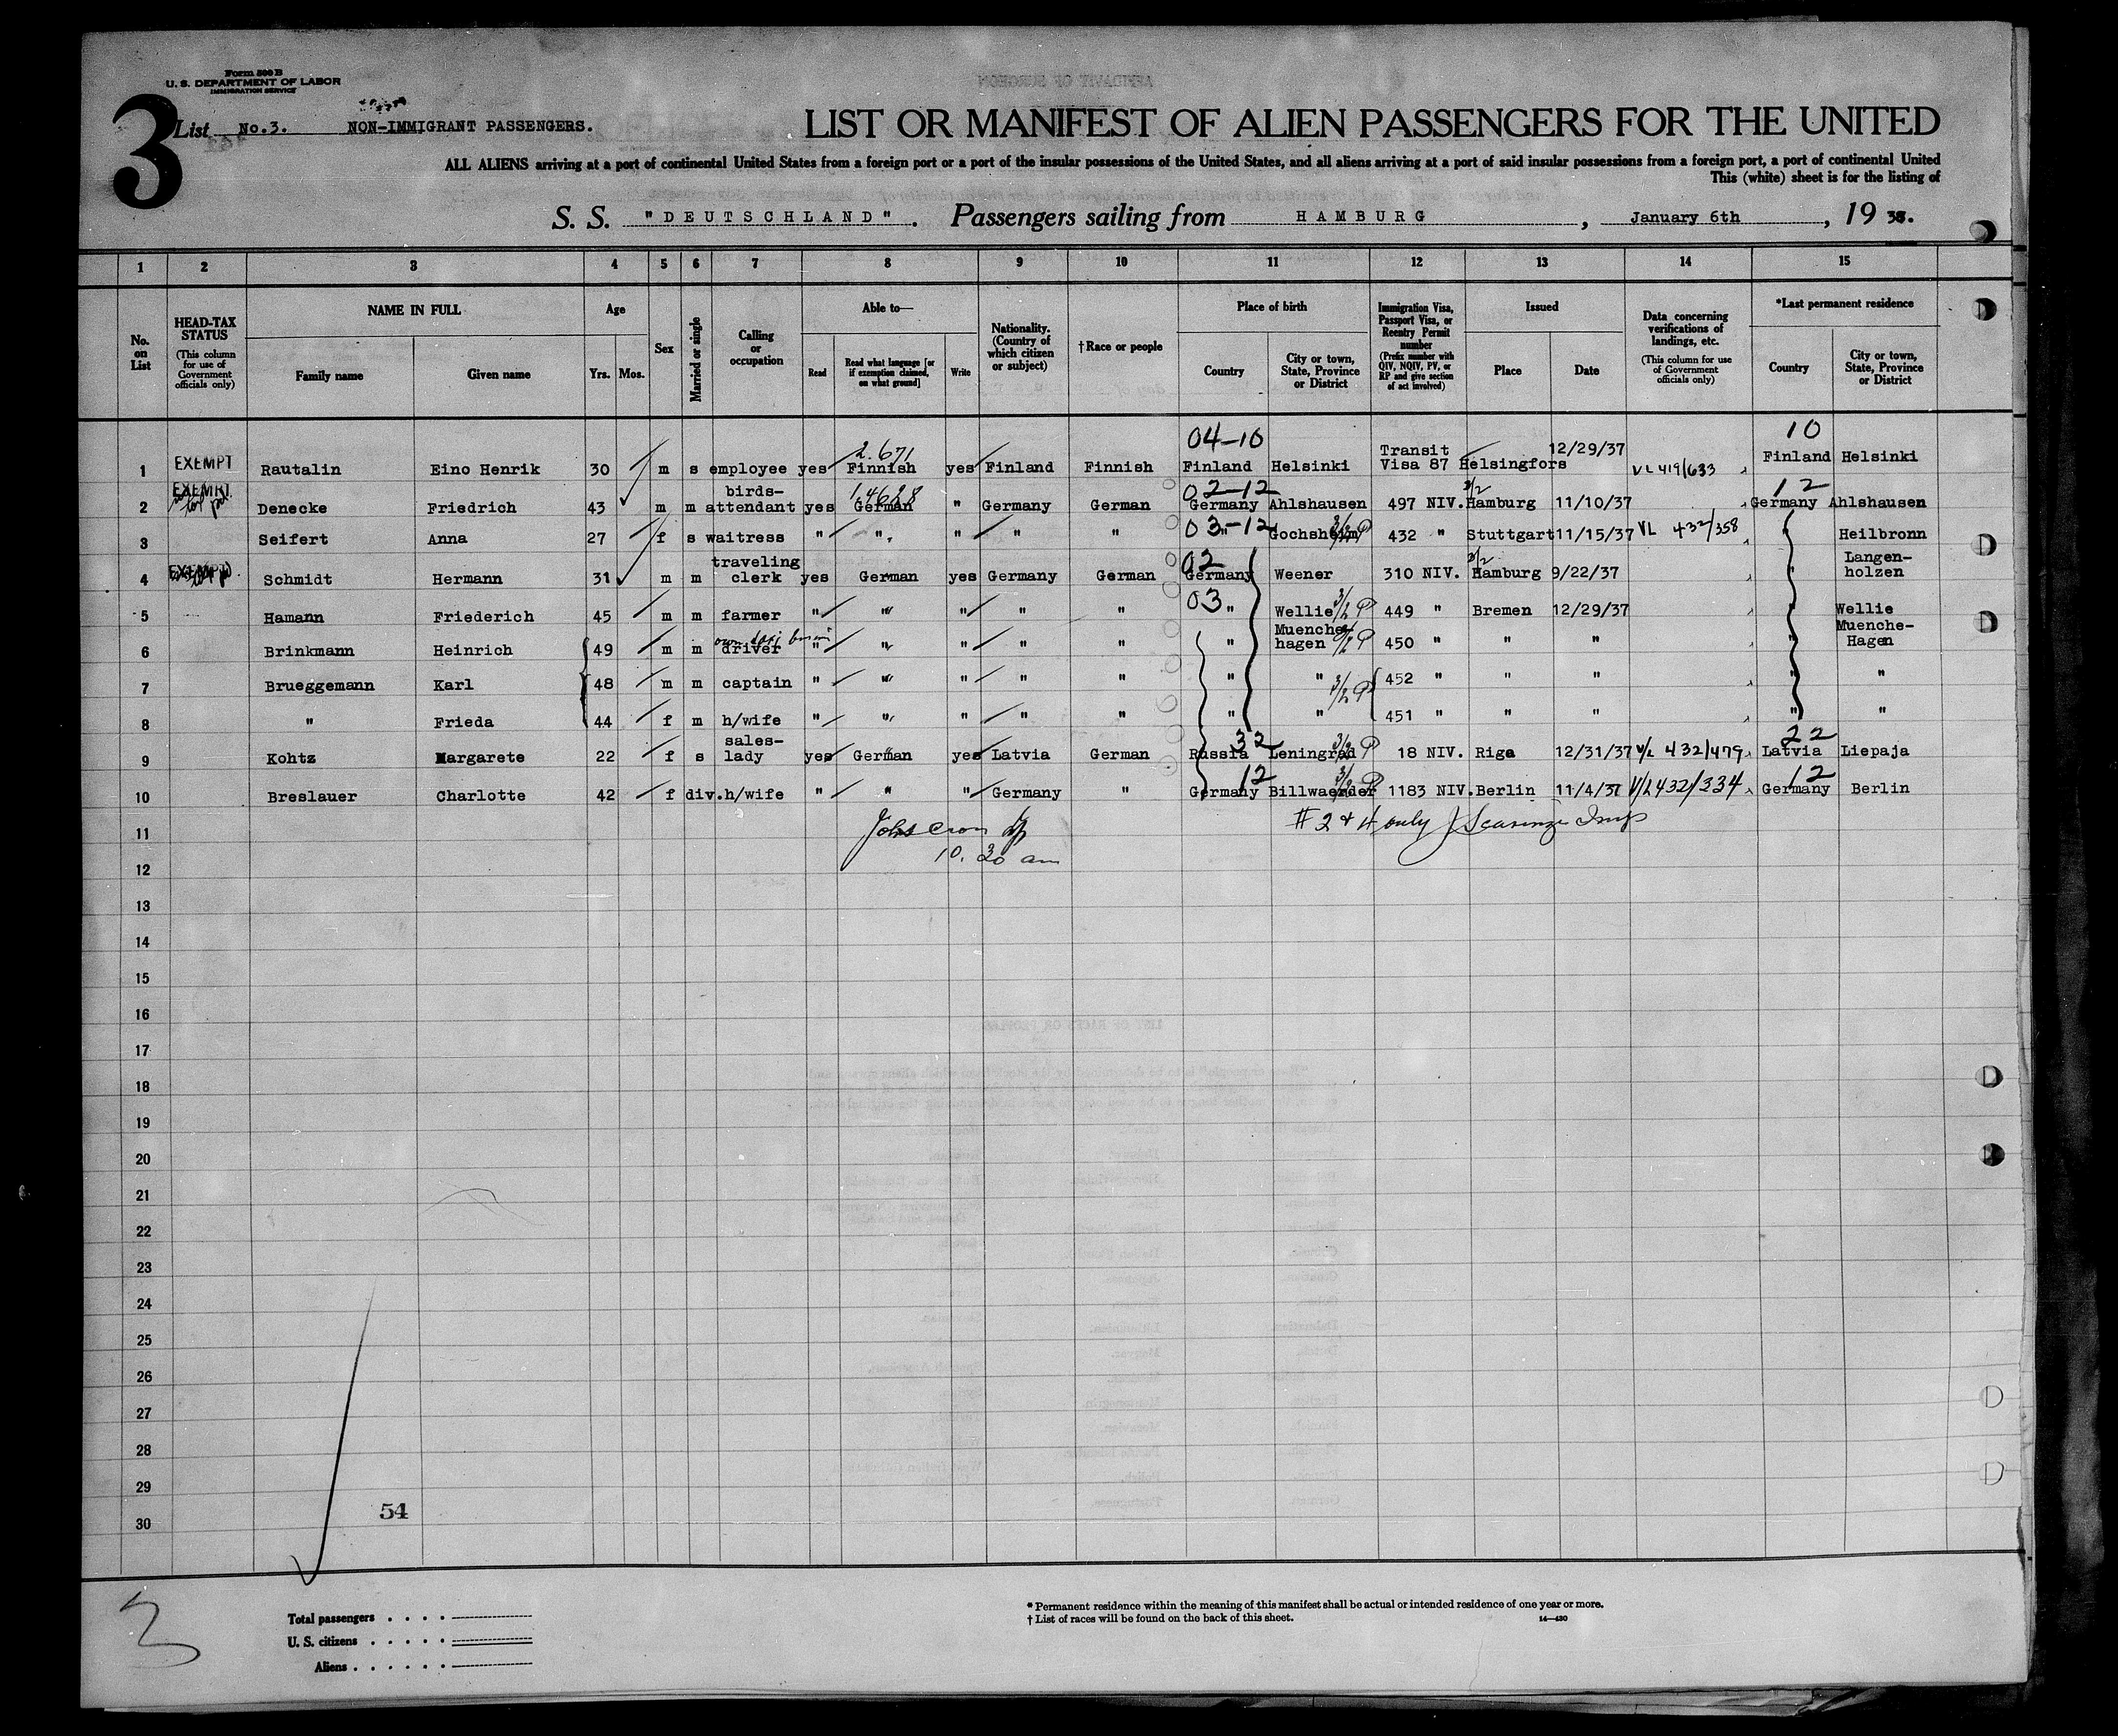 Form 500 B
U. S. DEPARTMENT OF LABOR
IMMIGRATION SERVICE
3
List No.3. NON-IMMIGRANT PASSENGERS.
LIST OR MANIFEST OF ALIEN PASSENGERS FOR THE UNITED
ALL ALIENS arriving at a port of continental United States from a foreign port or a port of the insular possessions of the United States, and all aliens arriving at a port of said insular possessions from a foreign port, a port of continental United
This (white) sheet is for the listing of
S. S. "DEUTSCHLAND". Passengers sailing from HAMBURG, January 6th, 19 38.
1 2 3 4 5 6 7 8 9 10 11 12 13 14 15
No. on List
HEAD-TAX STATUS
(This column for use of Government officials only)
NAME IN FULL
Family name Given name
Age
Yrs. Mos.
Sex
Married or single
Calling or occupation
Able to—
Read
Read what language [or if exemption claimed, on what ground]
Write
Nationality. (Country of which citizen or subject)
†Race or people
Place of birth
Country
City or town, State, Province or District
Immigration Visa, Passport Visa, or Reentry Permit number
(Prefix number with QIV, NQIV, PV, or RP and give section of act involved)
Issued
Place Date
Data concerning verifications of landings, etc.
(This column for use of Government officials only)
*Last permanent residence
Country
City or town, State, Province or District
04-10 10
2.671
1 EXEMPT Rautalin Eino Henrik 30 m s employee yes Finnish yes Finland Finnish Finland Helsinki Transit Visa 87 Helsingfors 12/29/37 VL 419/633 Finland Helsinki
02-12 3/2 12
2 EXEMPT Denecke Friedrich 43 m m birds-attendant yes German " Germany German Germany Ahlshausen 497 NIV. Hamburg 11/10/37 Germany Ahlshausen
03-12
3 Seifert Anna 27 f s waitress " " " " " " Gochsheim 432 " Stuttgart 11/15/37 VL 432/358 " Heilbronn
02 3/2
4 EXEMPT Schmidt Hermann 31 m m traveling clerk yes German yes Germany German Germany Weener 310 NIV. Hamburg 9/22/37 " Langen-holzen
03 3/2
5 Hamann Friederich 45 m m farmer " " " " " " Wellie 449 " Bremen 12/29/37 " Wellie
own taxi
6 Brinkmann Heinrich 49 m m driver " " " " " " Muenche-hagen 450 " " " " Muenche-Hagen
7 Brueggemann Karl 48 m m captain " " " " " " " 452 " " " " "
3/2
8 " Frieda 44 f m h/wife " " " " " " " 451 " " " " "
32 22
9 Kohtz Margarete 22 f s sales-lady yes German yes Latvia German Russia Leningrad 18 NIV. Riga 12/31/37 V/L 432/479 Latvia Liepaja
12 3/2 12
10 Breslauer Charlotte 42 f div. h/wife " " " Germany " Germany Billwaerder 1183 NIV. Berlin 11/4/37 V/L 432/334 Germany Berlin
11 # 2 & 4 only
12 10.30 am
13
14
15
16
17
18
19
20
21
22
23
24
25
26
27
28
29
54
30
3
Total passengers
U. S. citizens
Aliens
* Permanent residence within the meaning of this manifest shall be actual or intended residence of one year or more.
† List of races will be found on the back of this sheet.
14—430